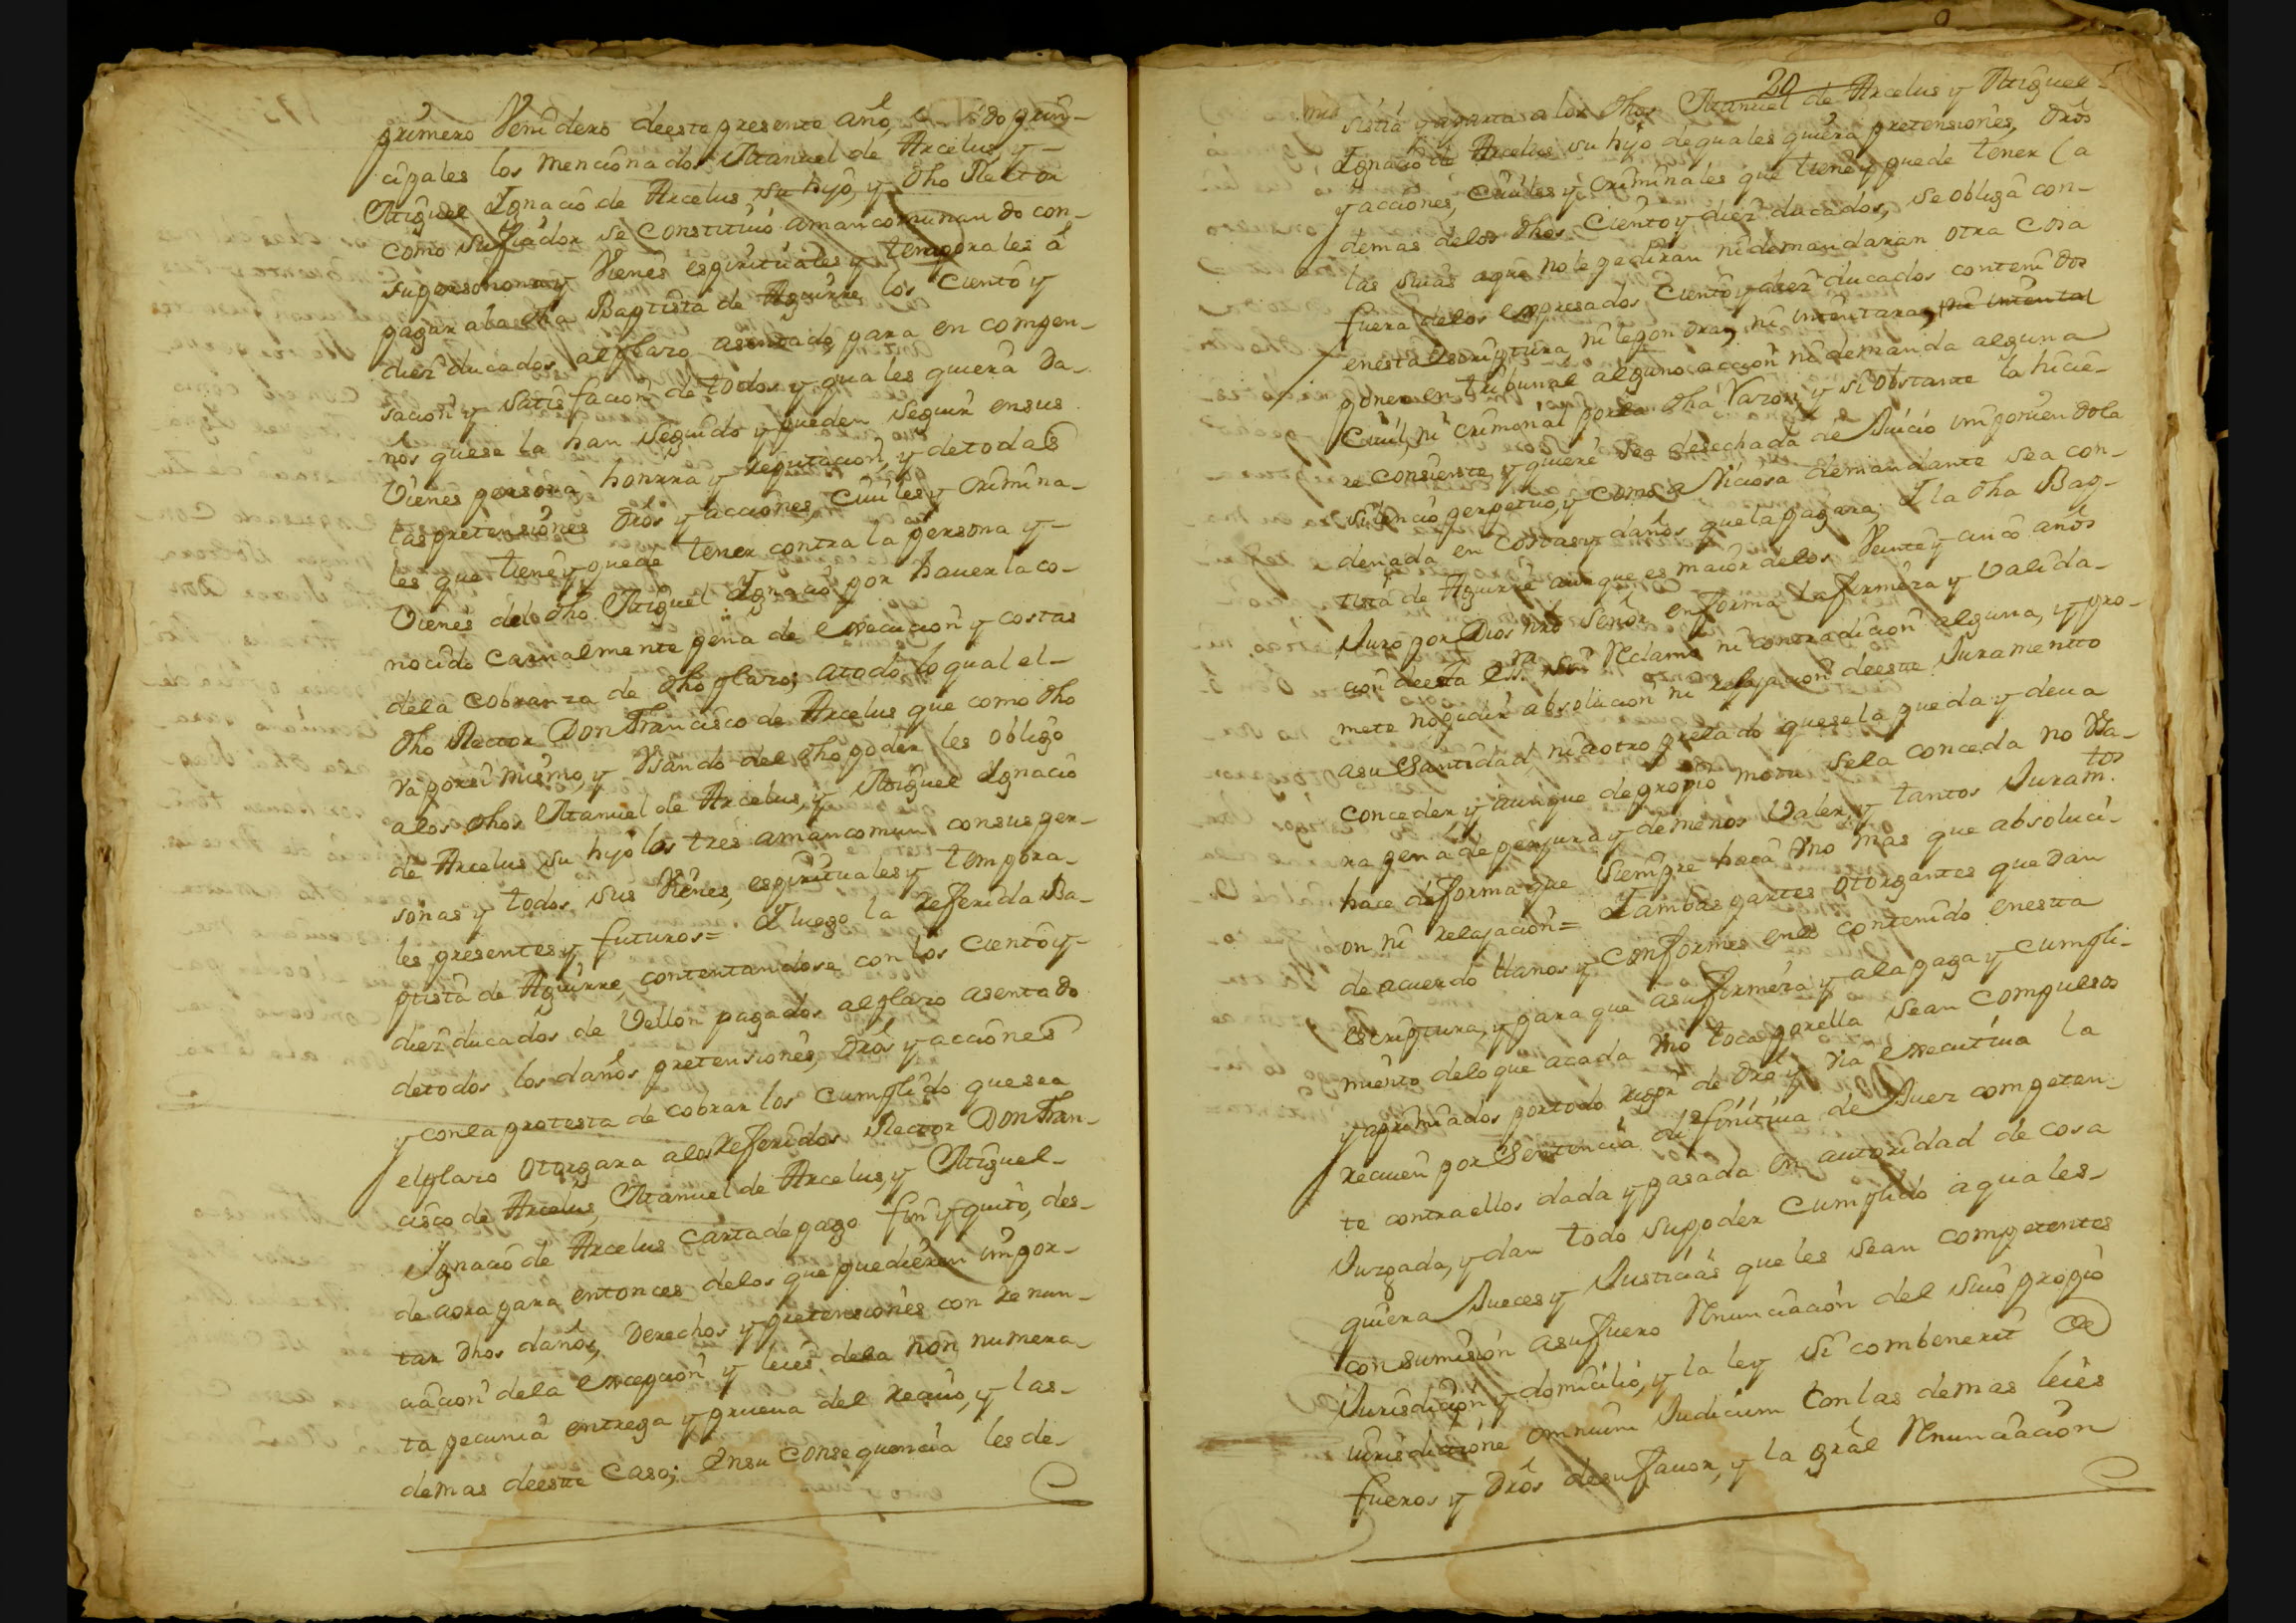 primero Venidero deeste presente año, do prin-
cipales los mencionados Manuel de Arcelus, y-
Miguel Ignacio de Arcelus su hijo, y dho Rector
como sufiador se constituió amancomunando con-
supersonona y Vienes espirituales y temporales á
pagar ala dha Baptista de Aguirre los ciento y
diez ducados alplazo asentado, para en compen-
sacion y satisfacion de todos y quales quiera da-
ños quese la han seguido y pueden seguir ensus
Vienes persona honrra y reputacion, y detodas
las pretensiones dros y acciones, Ciuiles y crimina-
les que tiene y puede tener contra la persona y-
Vienes delo dho Miguel Ygnacio por hauerla co-
nocido carnalmente pena de execucion y costas
dela cobranza de dho plazo; atodo lo qual el-
dho Rector Don Francisco de Arcelus que como dho
va porsi mismo, y Vsando del dho poder les obligo
alos dhos Manuel de Arcelus, y Miguel Ignacio
de Arcelus su hijo los tres amancomun consusper-
sonas y todos sus Vienes, espirituales y tempora-
les presentes y futuros= Y luego la referida Ba-
ptista de Aguirre, contentandose con los ciento y-
diez ducados de Vellon pagados alplazo asentado
detodos los daños pretensiones, dros y acciones
y conla protesta de cobrar los cumplido quesea
elplazo otorgara alos referidos Rector Don Fran-
cisco de Arcelus, Manuel de Arcelus, y Miguel-
Ignacio de Arcelus carta de pago fin y quito, des-
de aora para entonces delos que puedieren impor-
tar dhos daños, Derechos y pretensiones con renun-
ciacion dela excepcion y leies dela non numera-
ta pecunia entrega y prueua del reciuo, y las-
demas deeste caso; Ensu consequencia les de-
20
sistia y aparta a los dhos Manuel de Arcelus y Miguel-
Ignacio de Arcelus su hijo dequales quiera pretensiones, dros
y acciones, Ciuiles y criminales que tiene y puede tener (a
demas delos dhos ciento y diez ducados, se obliga con-
las suias aque nole pediran ni demandaran otra cosa
fuera delos expresados ciento y diez ducados contenidos
enesta escriptura, ni lepondran, ni intentaran, ni intentar
poner en tribunal alguno accion ni demanda alguna
Ciuil, ni criminal porla dha razon, y si obstante la hicie-
re consiente, y quiere sea desechada de Juicio imponiendola
silencio perpetuo, y como a Viciosa demandante sea con-
denada en costas y daños quela pagara; Y la dha Bap-
tista de Aguirre aunque es maior delos Veinte y cinco años
Juró por Dios nro Señor enforma la firmeza y valida-
cion deesta essra Sin Reclamo ni contradicion alguna, y pro-
mete nopedir absolucion ni relajacion deeste Juramentto
asu Santidad, ni aotro prelado quesela pueda y deua
conceder, y aunque depropio motu sela conceda no Vsa-
ra pena de perjura y demenos Valer, y tantos Juram.tos
hace deforma que siempre haia vno mas que absoluci-
on ni relajacion= Y ambas partes otorgantes quedan
de acuerdo llanos y conformes enlo contenido enestta
escriptura, y para que asufirmeza y ala paga y cumpli-
miento delo que acada vno toca porella sean compulsos
y apremiados portodo rigor de dro y via executiua la
reciuen por Sentencia difinitiua de Juez competen-
te contra ellos dada y pasada en autoridad de cosa
Juzgada, y dan todo supoder cumplido aquales-
quiera Jueces y Justicias queles sean competentes
con sumision asufuero Renunciacion del suio propio
Jurisdicion y domicilio, y la ley Si combenerit de
iurisdicione omnium Judicum con las demas leies
fueros y dros desufauor, y la gral Renunciacion